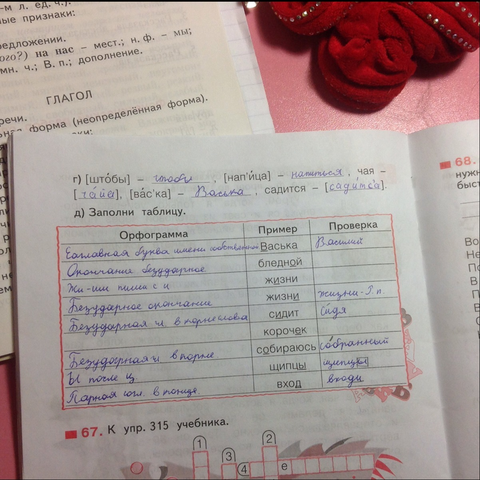 -м л. ед. ч.).
ые признаки:
редложении.
ого?) на нас – мест.; н. ф. – мы;
мн. ч.; В. п.; дополнение.
ГЛАГОЛ
речи.
ная форма (неопределённая форма).
г) [што́бы] – чтобы , [нап'и́ца] – напиться, чая –
[ча́йа], [ва́с'ка] – Васька , садится – [сади́тса].
д) Заполни таблицу.
Орфограмма Пример Проверка
Заглавная буква имени собственном Васька Василий
Окончание безударное бледной
Жи-ши пиши с и жизни
Безударное окончание жизни жизни - Р.п.
Безударная и в корне слова сидит си́дя
корочек
Безударная и в корне собираюсь со́бранный
Ы после ц щипцы щипцы
Парная согл. в конце. вход входы
67. К упр. 315 учебника.
1
2
3
4 е
68.
нужн
быст
Во
Не
По
В
П